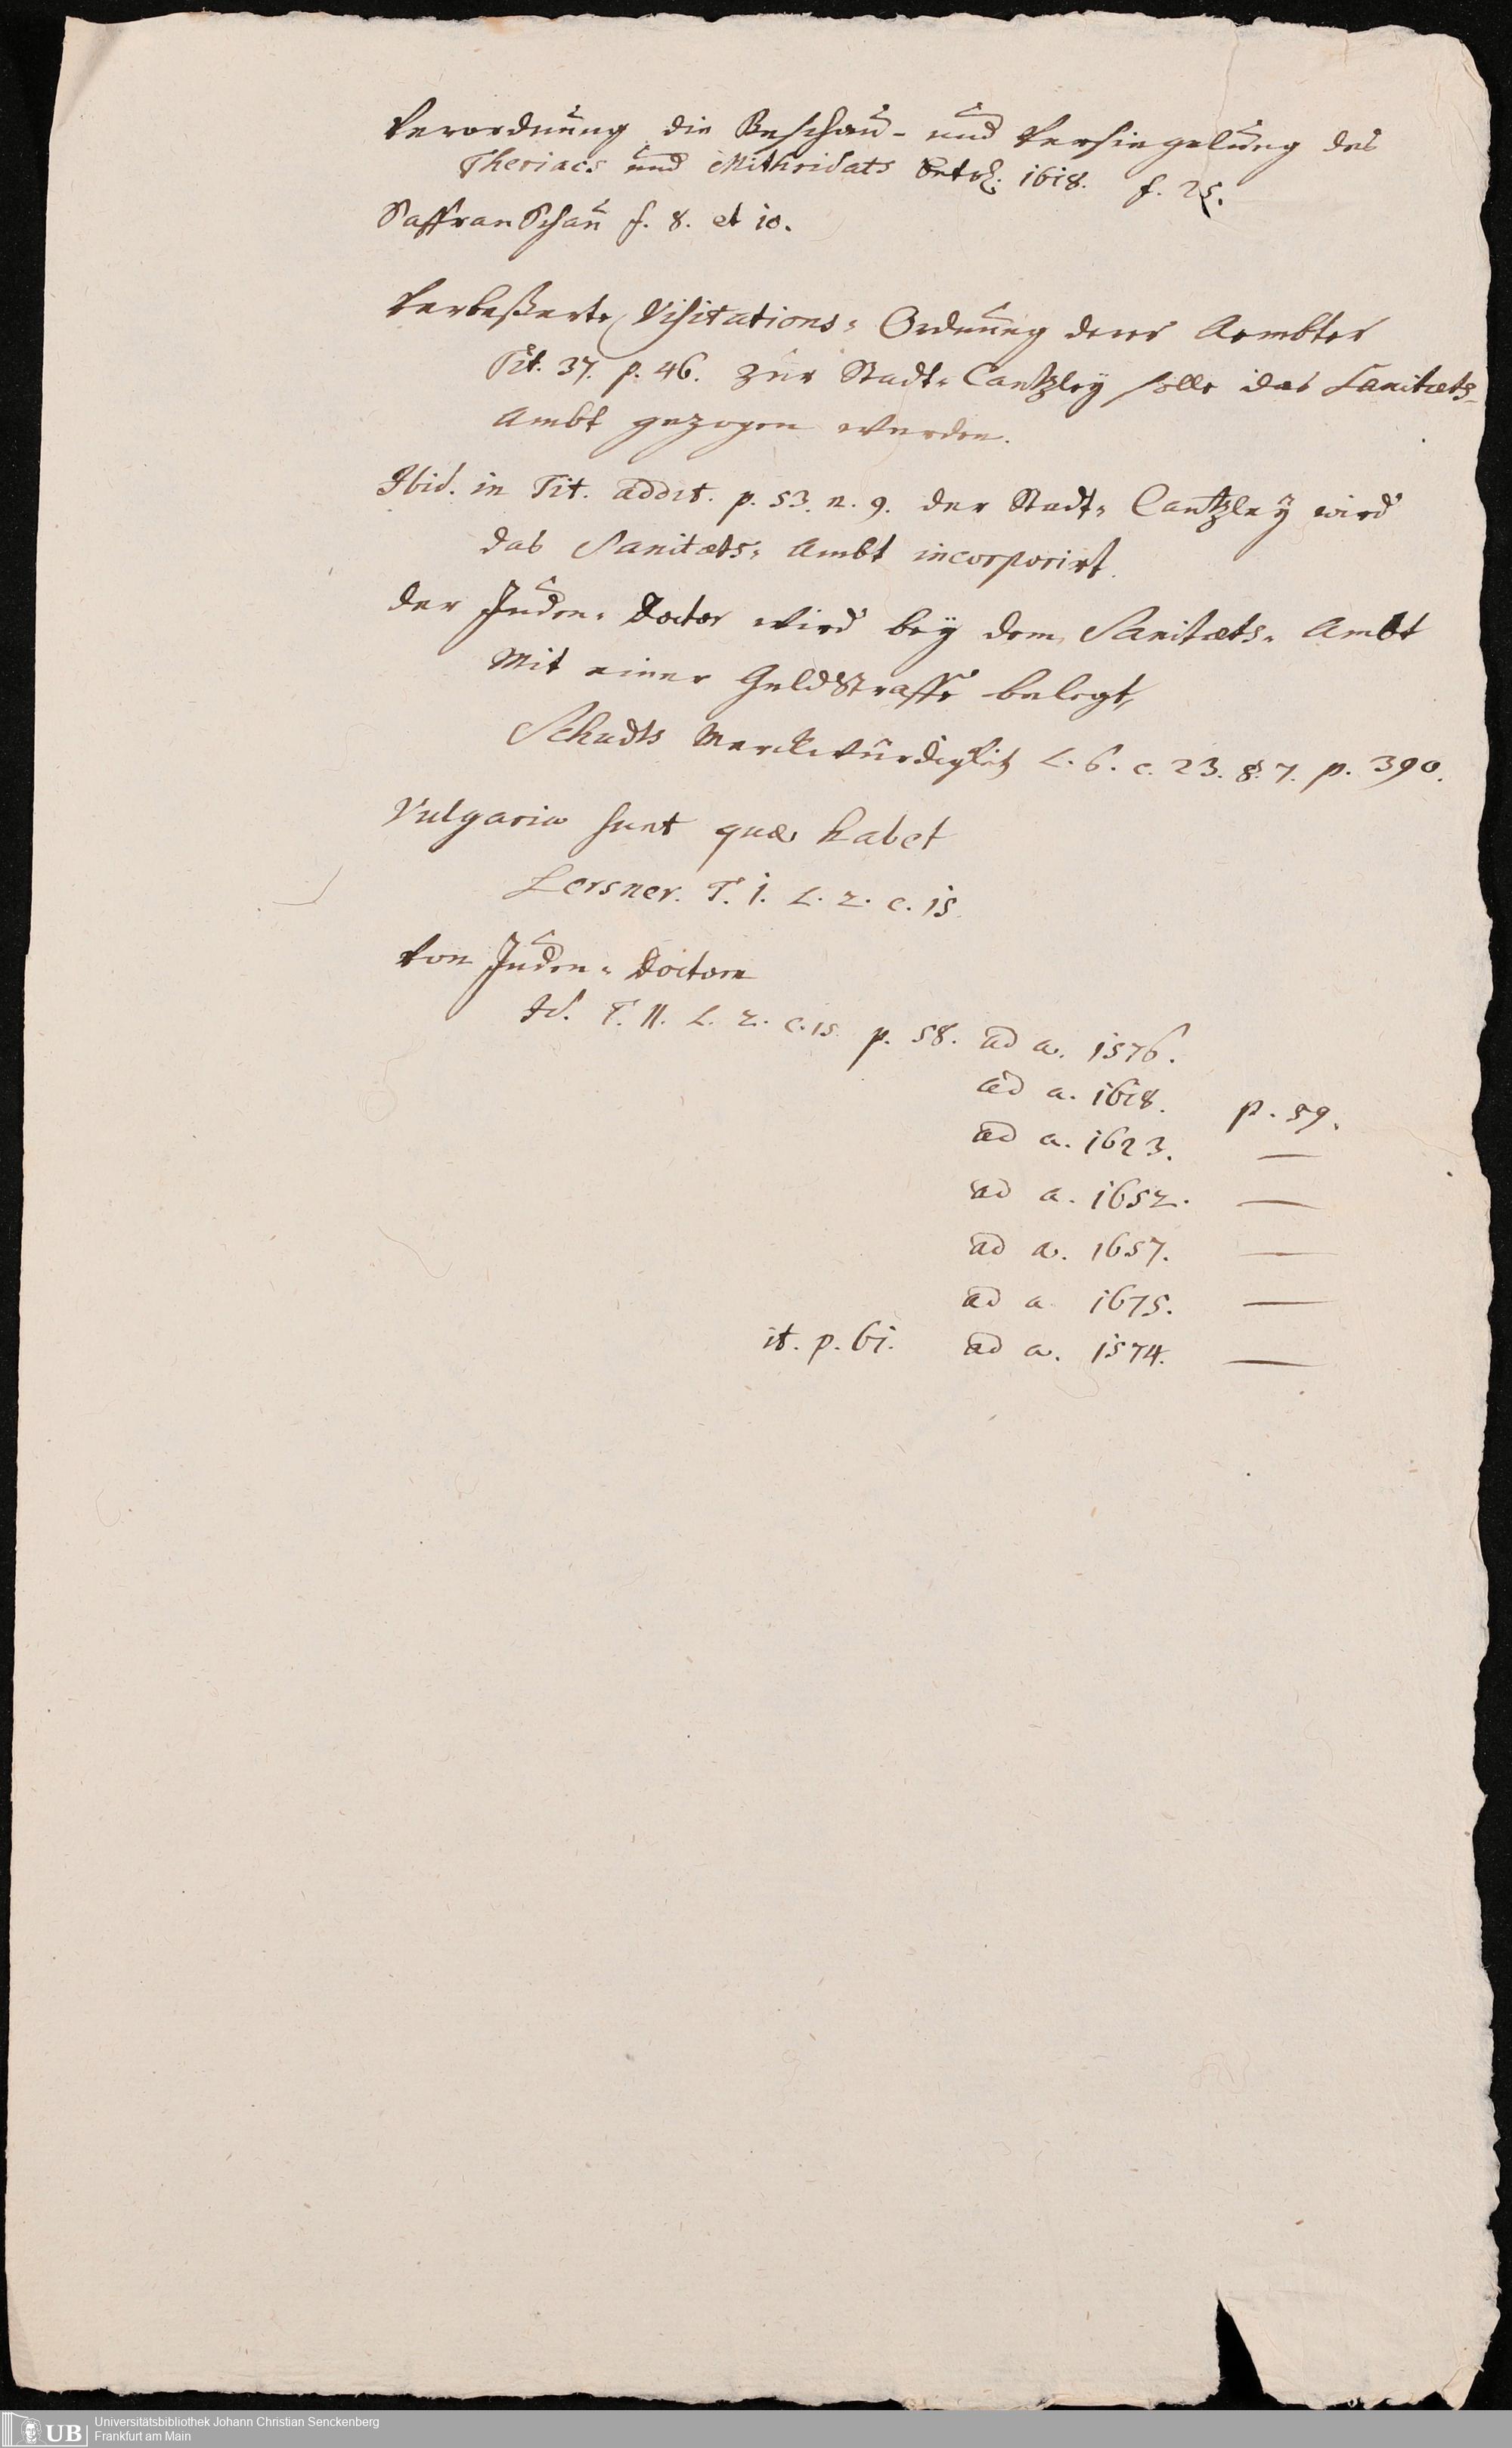 Verordnung die Beschau- und Versiegelung des
Theriacs und Mithridats betrf. 1618. f. 25.
Saffran Schau f. 8. et 10.
Verbeßerte Visitations-Ordnung derer Aembter
Tit. 37. p. 46. zur Stadt-Cantzley solle das Sanitæts-
Ambt gezogen werden.
Ibid. in Tit. addit. p. 53. n. 9. der Stadt-Cantzley wird
das Sanitæts-Ambt incorporirt.
der Juden-Doctor wird bey dem Sanitæts-Ambt
Mit einer Geldstraffe belegt,
Schudts Merckwürdigktn L. 6. c. 23. §. 7. p. 390.
Vulgaria sunt quæ habet
Lersner. T. 1. L. 2. c. 15
Von Juden-Doctorn
Id. T. II. L. 2. c. 15. p. 58. ad a. 1576.
ad a. 1618. p. 59.
ad a. 1623. —
ad a. 1652. —
ad a. 1657. —
ad a. 1675. —
it. p. 61. ad a. 1574. —
UB Universitätsbibliothek Johann Christian Senckenberg
Frankfurt am Main